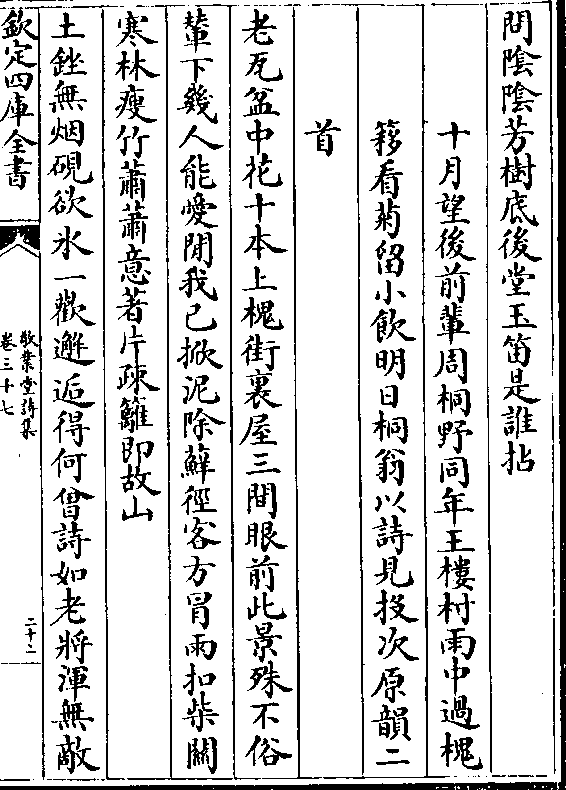 問陰陰芳樹底後堂玉笛是誰拈
十月望後前輩周桐野同年王樓村雨中過槐
簃看菊留小飲明日桐翁以詩見投次原韻二
首
老瓦盆中花十本上槐街裏屋三間眼前此景殊不俗
輦下幾人能愛閒我已掀泥除蘚徑客方冐雨扣柴關
寒林瘦竹蕭蕭意著片疎籬即故山
土銼無烟硯欲氷一歡邂逅得何曾詩如老將渾無敵
欽定四庫全書
敬業堂詩集
卷三十七
二十二